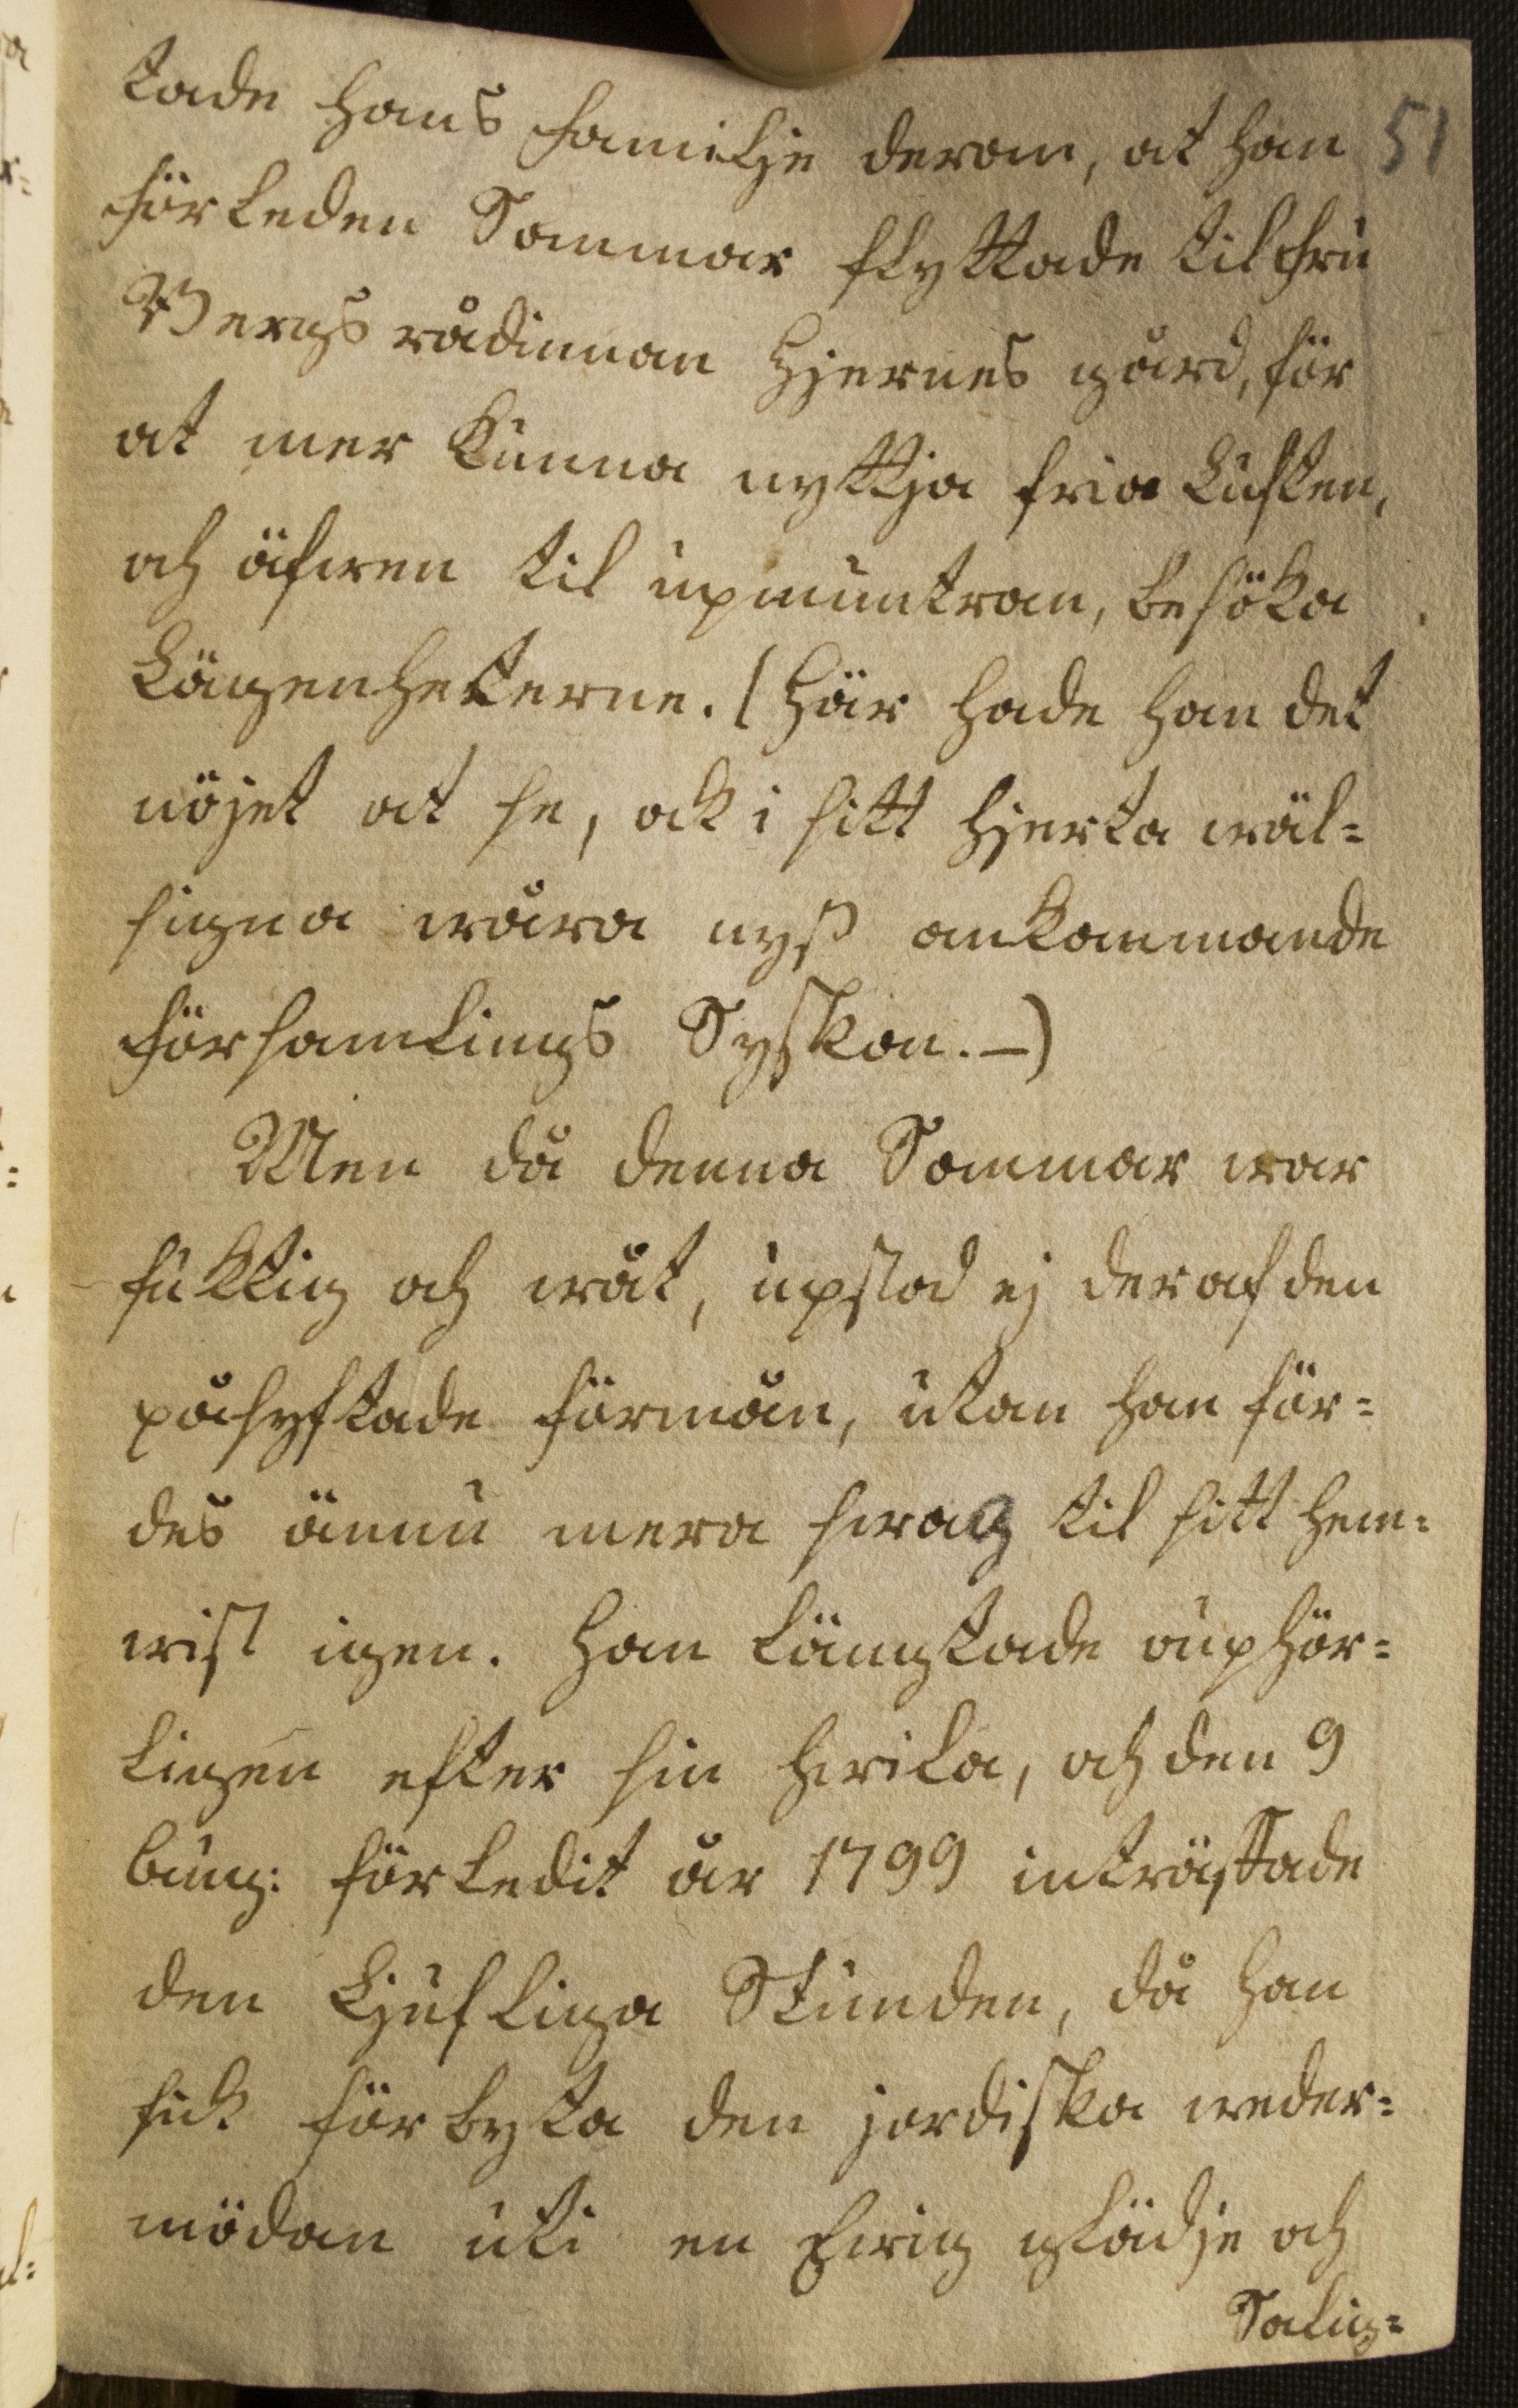 tade hans familje derom, at han 51
förleden Sommar flyttade til fru
Bergsrådinnan Hjernes gård, för
at mer kunna nyttja fria luften,
och äfwen til upmuntran, besöka
Lägenheterne. (Här hade han det
nöjet at se, ock i sitt hjerta wäl=
signa wåra nyß ankommande
församlings Syskon. —)
Men då denna Sommar war
fuktig och wåt, upstod ej deraf den
påsyftade förmån, utan han för=
des ännu mera swag til sitt hem=
wist igen. Han längtade ouphör=
ligen efter sin hwila, och den 9
bung: förledit år 1799 inträffade
den Ljufliga Stunden, då han
fick förbyta den jordiska weder=
mödan uti en Ewig glädje och
Salig=